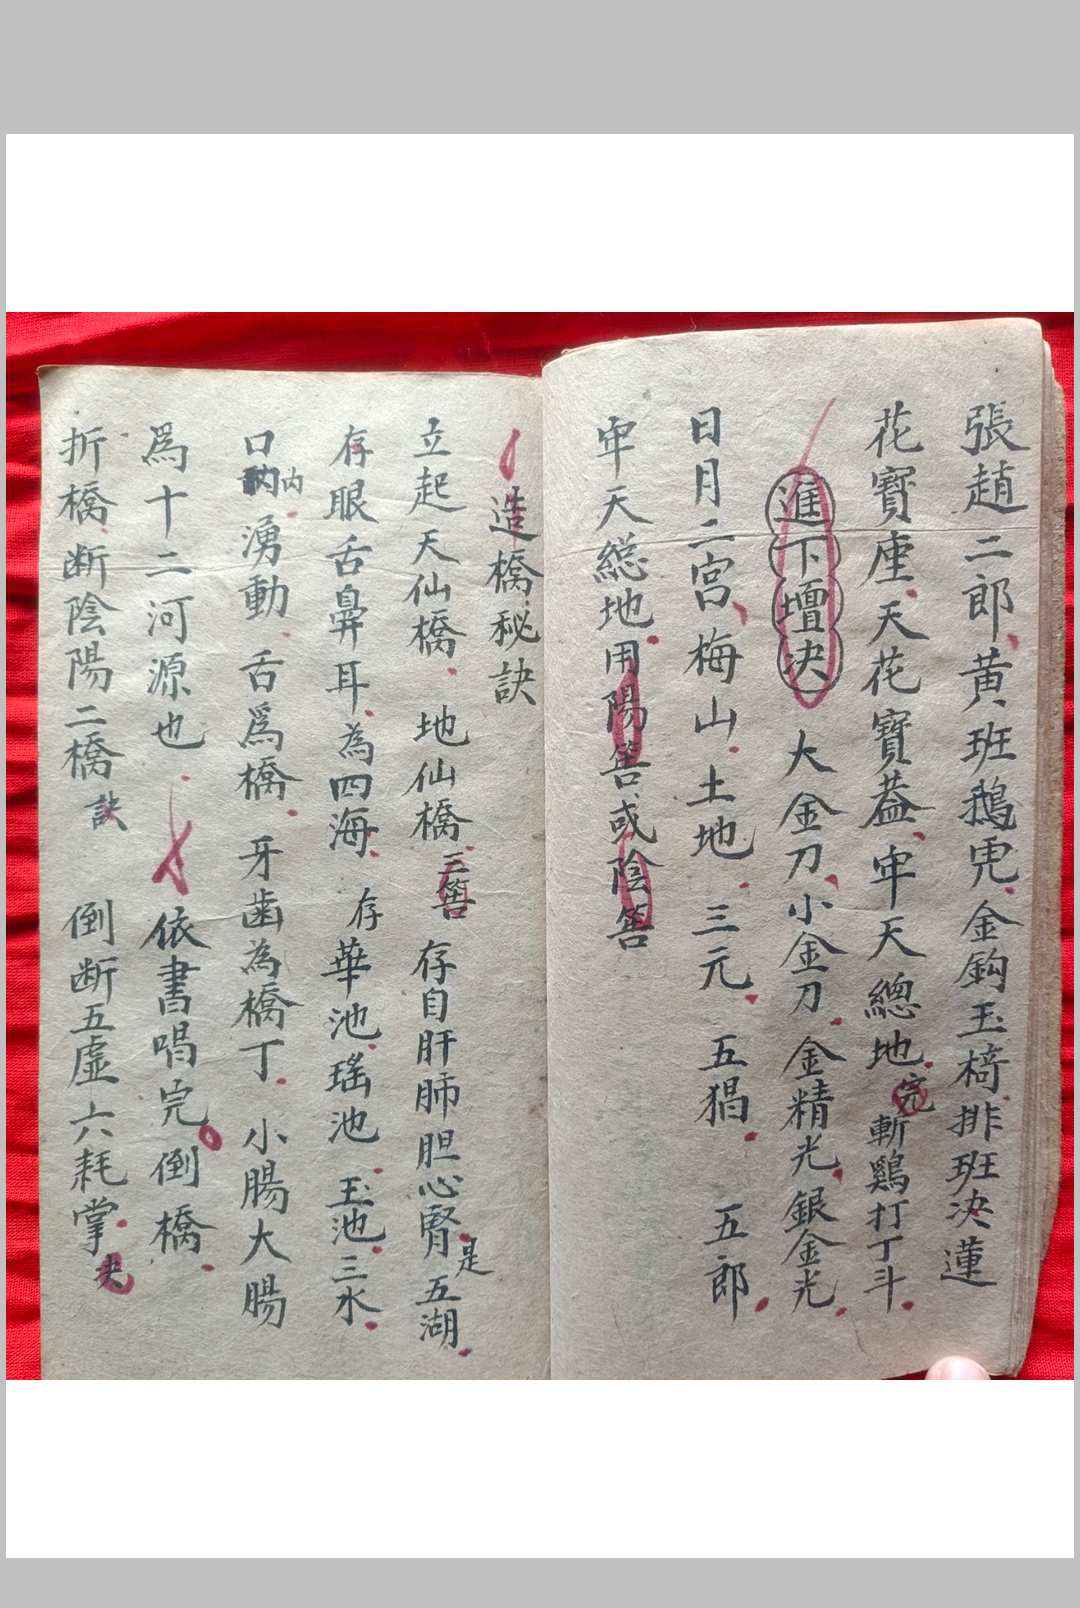 張趙二郎黄班鵝兠金鈎玉椅排班决蓮
花寶座天花寶葢牢天總地完斬鷄打丁斗
進下壇决 大金刀小金刀金精光銀金光
日月二宮梅山土地三元五猖五郎
牢天総地用陽筶或陰筶
造橋秘訣
立起天仙橋地仙橋三筶存自肝肺胆心腎是五湖
存眼舌鼻耳為四海存華池瑤池玉池三水
口内湧動舌爲橋牙齒為橋丁小腸大腸
爲十二河源也 依書唱完倒橋
折橋断陰陽二橋訣倒断五虛六耗掌夬